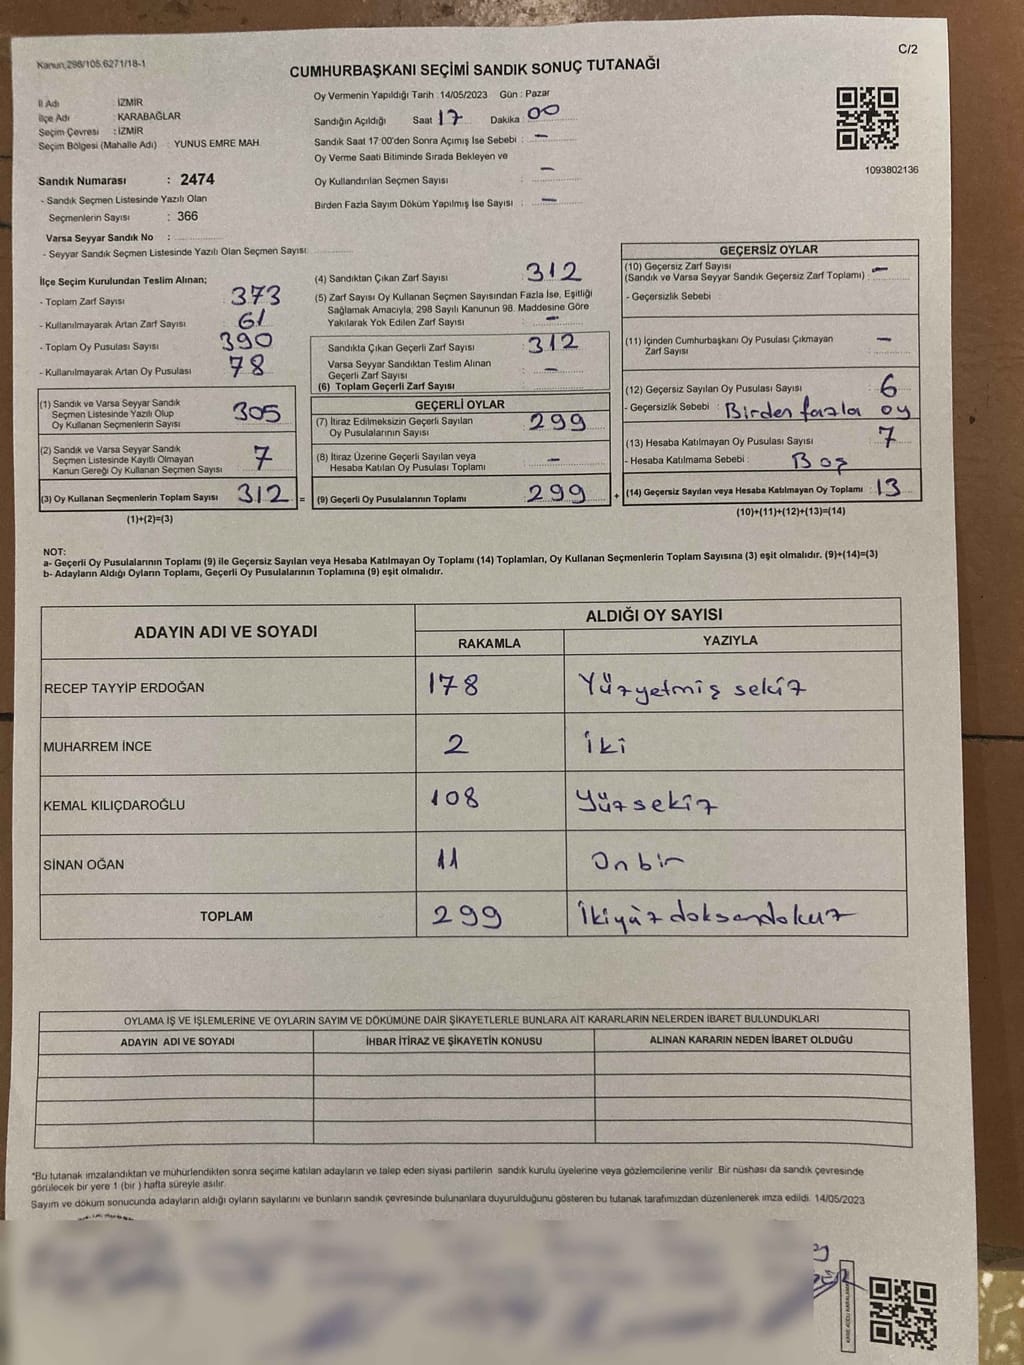 C/2
Kanun,298/105.6271/18-1
CUMHURBAŞKANI SEÇİMİ SANDIK SONUÇ TUTANAĞI
İl Adı İZMİR
İlçe Adı : KARABAĞLAR
Seçim Çevresi : İZMİR
Seçim Bölgesi (Mahalle Adı) : YUNUS EMRE MAH.
Sandık Numarası : 2474
- Sandık Seçmen Listesinde Yazılı Olan
Seçmenlerin Sayısı : 366
Varsa Seyyar Sandık No :
- Seyyar Sandık Seçmen Listesinde Yazılı Olan Seçmen Sayısı
Oy Vermenin Yapıldığı Tarih : 14/05/2023 Gün : Pazar
Sandığın Açıldığı Saat 17 Dakika 00
Sandık Saat 17:00'den Sonra Açımış İse Sebebi : -
Oy Verme Saati Bitiminde Sırada Bekleyen ve
Oy Kullandırılan Seçmen Sayısı : -
Birden Fazla Sayım Döküm Yapılmış İse Sayısı : -
1093802136
İlçe Seçim Kurulundan Teslim Alınan;
- Toplam Zarf Sayısı 373
- Kullanılmayarak Artan Zarf Sayısı 61
- Toplam Oy Pusulası Sayısı 390
- Kullanılmayarak Artan Oy Pusulası 78
(1) Sandık ve Varsa Seyyar Sandık
Seçmen Listesinde Yazılı Olup
Oy Kullanan Seçmenlerin Sayısı 305
(2) Sandık ve Varsa Seyyar Sandık
Seçmen Listesinde Kayıtlı Olmayan
Kanun Gereği Oy Kullanan Seçmen Sayısı 7
(3) Oy Kullanan Seçmenlerin Toplam Sayısı 312 =
(1)+(2)=(3)
(4) Sandıktan Çıkan Zarf Sayısı 312
(5) Zarf Sayısı Oy Kullanan Seçmen Sayısından Fazla İse, Eşitliği
Sağlamak Amacıyla, 298 Sayılı Kanunun 98. Maddesine Göre
Yakılarak Yok Edilen Zarf Sayısı : -
Sandıkta Çıkan Geçerli Zarf Sayısı : 312
Varsa Seyyar Sandıktan Teslim Alınan
Geçerli Zarf Sayısı : -
(6) Toplam Geçerli Zarf Sayısı
GEÇERLİ OYLAR
(7) İtiraz Edilmeksizin Geçerli Sayılan
Oy Pusulalarının Sayısı 299
(8) İtiraz Üzerine Geçerli Sayılan veya
Hesaba Katılan Oy Pusulası Toplamı -
(9) Geçerli Oy Pusulalarının Toplamı 299 +
GEÇERSİZ OYLAR
(10) Geçersiz Zarf Sayısı
(Sandık ve Varsa Seyyar Sandık Geçersiz Zarf Toplamı) -
- Geçersizlik Sebebi :
(11) İçinden Cumhurbaşkanı Oy Pusulası Çıkmayan
Zarf Sayısı -
(12) Geçersiz Sayılan Oy Pusulası Sayısı 6
- Geçersizlik Sebebi : Birden fazla oy
(13) Hesaba Katılmayan Oy Pusulası Sayısı 7
- Hesaba Katılmama Sebebi : Boş
(14) Geçersiz Sayılan veya Hesaba Katılmayan Oy Toplamı : 13
(10)+(11)+(12)+(13)=(14)
NOT:
a- Geçerli Oy Pusulalarının Toplamı (9) ile Geçersiz Sayılan veya Hesaba Katılmayan Oy Toplamı (14) Toplamları, Oy Kullanan Seçmenlerin Toplam Sayısına (3) eşit olmalıdır. (9)+(14)=(3)
b- Adayların Aldığı Oyların Toplamı, Geçerli Oy Pusulalarının Toplamına (9) eşit olmalıdır.
ADAYIN ADI VE SOYADI ALDIĞI OY SAYISI
RAKAMLA YAZIYLA
RECEP TAYYİP ERDOĞAN 178 Yüzyetmiş sekiz
MUHARREM İNCE 2 İki
KEMAL KILIÇDAROĞLU 108 Yüzsekiz
SİNAN OĞAN 11 Onbir
TOPLAM 299 İkiyüzdoksandokuz
OYLAMA İŞ VE İŞLEMLERİNE VE OYLARIN SAYIM VE DÖKÜMÜNE DAİR ŞİKAYETLERLE BUNLARA AİT KARARLARIN NELERDEN İBARET BULUNDUKLARI
ADAYIN ADI VE SOYADI İHBAR İTİRAZ VE ŞİKAYETİN KONUSU ALINAN KARARIN NEDEN İBARET OLDUĞU
*Bu tutanak imzalandıktan ve mühürlendikten sonra seçime katılan adayların ve talep eden siyasi partilerin sandık kurulu üyelerine veya gözlemcilerine verilir. Bir nüshası da sandık çevresinde
görülecek bir yere 1 (bir ) hafta süreyle asılır.
Sayım ve döküm sonucunda adayların aldığı oyların sayılarını ve bunların sandık çevresinde bulunanlara duyurulduğunu gösteren bu tutanak tarafımızdan düzenlenerek imza edildi. 14/05/2023